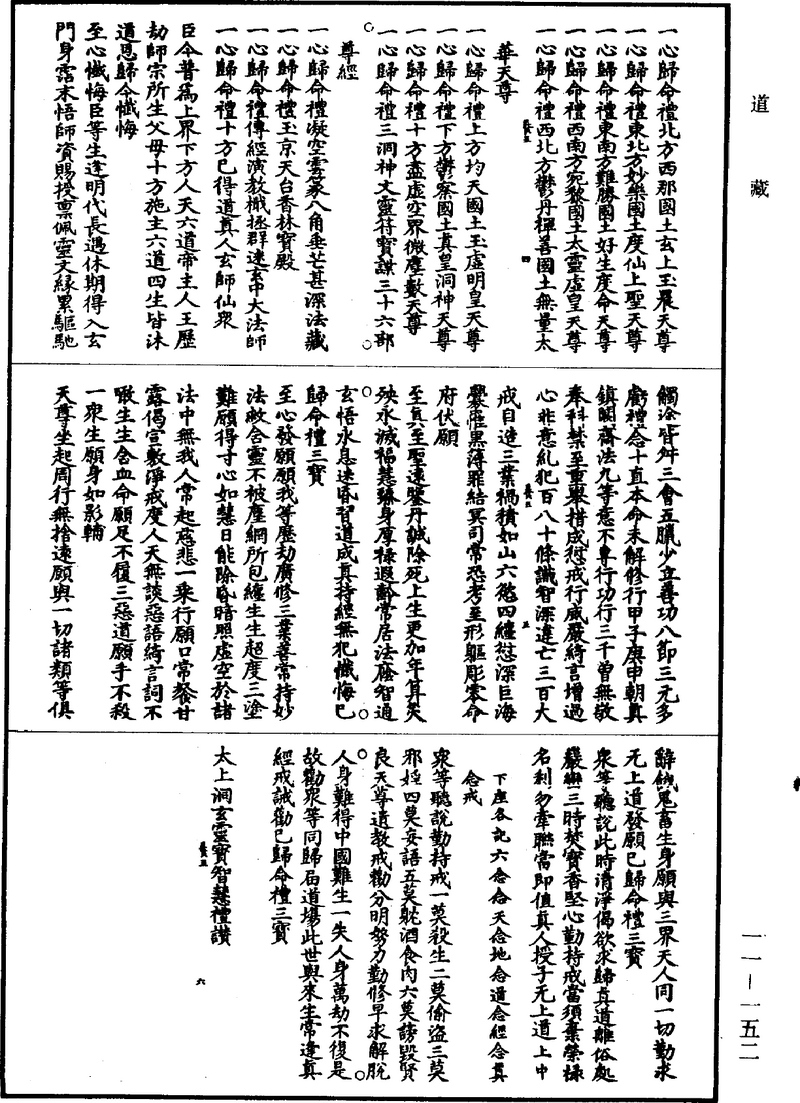 道藏
一心歸命禮北方西那國土玄上玉晨天尊
一心歸命禮東北方妙樂國土度仙上聖天尊
一心歸命禮東南方難勝國土好生度命天尊
一心歸命禮西南方宛黎國土太靈虛皇天尊
一心歸命禮西北方鬱丹禪善國土無量太
四
華天尊
一心歸命禮上方均天國土玉虛明皇天尊
一心歸命禮下方鬱察國土真皇洞神天尊
一心歸命禮十方盡虛空界微塵數天尊
一心歸命禮三洞神文靈符寶諜三十六部
尊經
一心歸命禮凝空雲篆八角垂芒甚深法藏
一心歸命禮玉京天台香林寶殿
一心歸命禮傳經演教檝拯群迷玄中大法師
一心歸命禮十方已得道真人玄師仙衆
臣今普爲上界下方人天六道帝主人王歷
劫師宗所生父母十方施主六道四生皆沐
道恩歸命懺悔
至心懺悔臣等生逢明代長遇休期得入玄
門身霑末悟師資賜授禀佩靈文緣累驅馳
觸途皆舛三會五臘少立善功八節三元多
虧禮念十直本命未解修行甲子庚申朝真
鎮闕齋法九等意不專行功行三千曾無敬
奉科禁至重舉措成愆戒行威嚴綺言增過
心非意亂犯百八十條識智深違亡三百大
五
戒自造三業禍積如山六慾四纏愆深巨海
釁罹黑薄罪結冥司常恐考至形軀彫零命
府伏願
至真至聖遠鑒丹誠除死上生更加年筭災
殃永滅福慧臻身厚祿遐齡常居法廕智通
玄悟永息迷昏習道成真持經無犯懺悔已
歸命禮三寶
至心發願願我等歷劫廣修三業善常持妙
法救含靈不被塵網所包纏生生超度三塗
難願得寸心如慧日能除昏暗照虛空於諸
法中無我人常起慈悲一乘行願口常飡甘
露偈宣敷淨戒度人天無談惡語綺言詞不
噉生生含血命願足不履三惡道願手不殺
一衆生願身如影輔
天尊坐起周行無捨遠願與一切諸類等俱
辭餓鬼畜生身願與三界天人同一切勤求
无上道發願已歸命禮三寶
衆等聽說此時清淨偈欲求歸真道離俗處
嚴巒三時焚寶香堅心勤持戒當須棄榮祿
名利勿牽聯當即值真人授子无上道上中
下座各記六念念天念地念道念經念真
念戒
衆等聽說勤持戒一莫殺生二莫偷盜三莫
邪婬四莫妄語五莫躭酒食肉六莫謗毀賢
良天尊遺教戒勸分明努力勤修早求解脫
人身難得中國難生一失人身萬劫不復是
故勸衆等同歸屆道場此世與來生常逢真
經戒誡勸已歸命禮三寶
太上洞玄靈寶智慧禮讚
六
一一-一五二